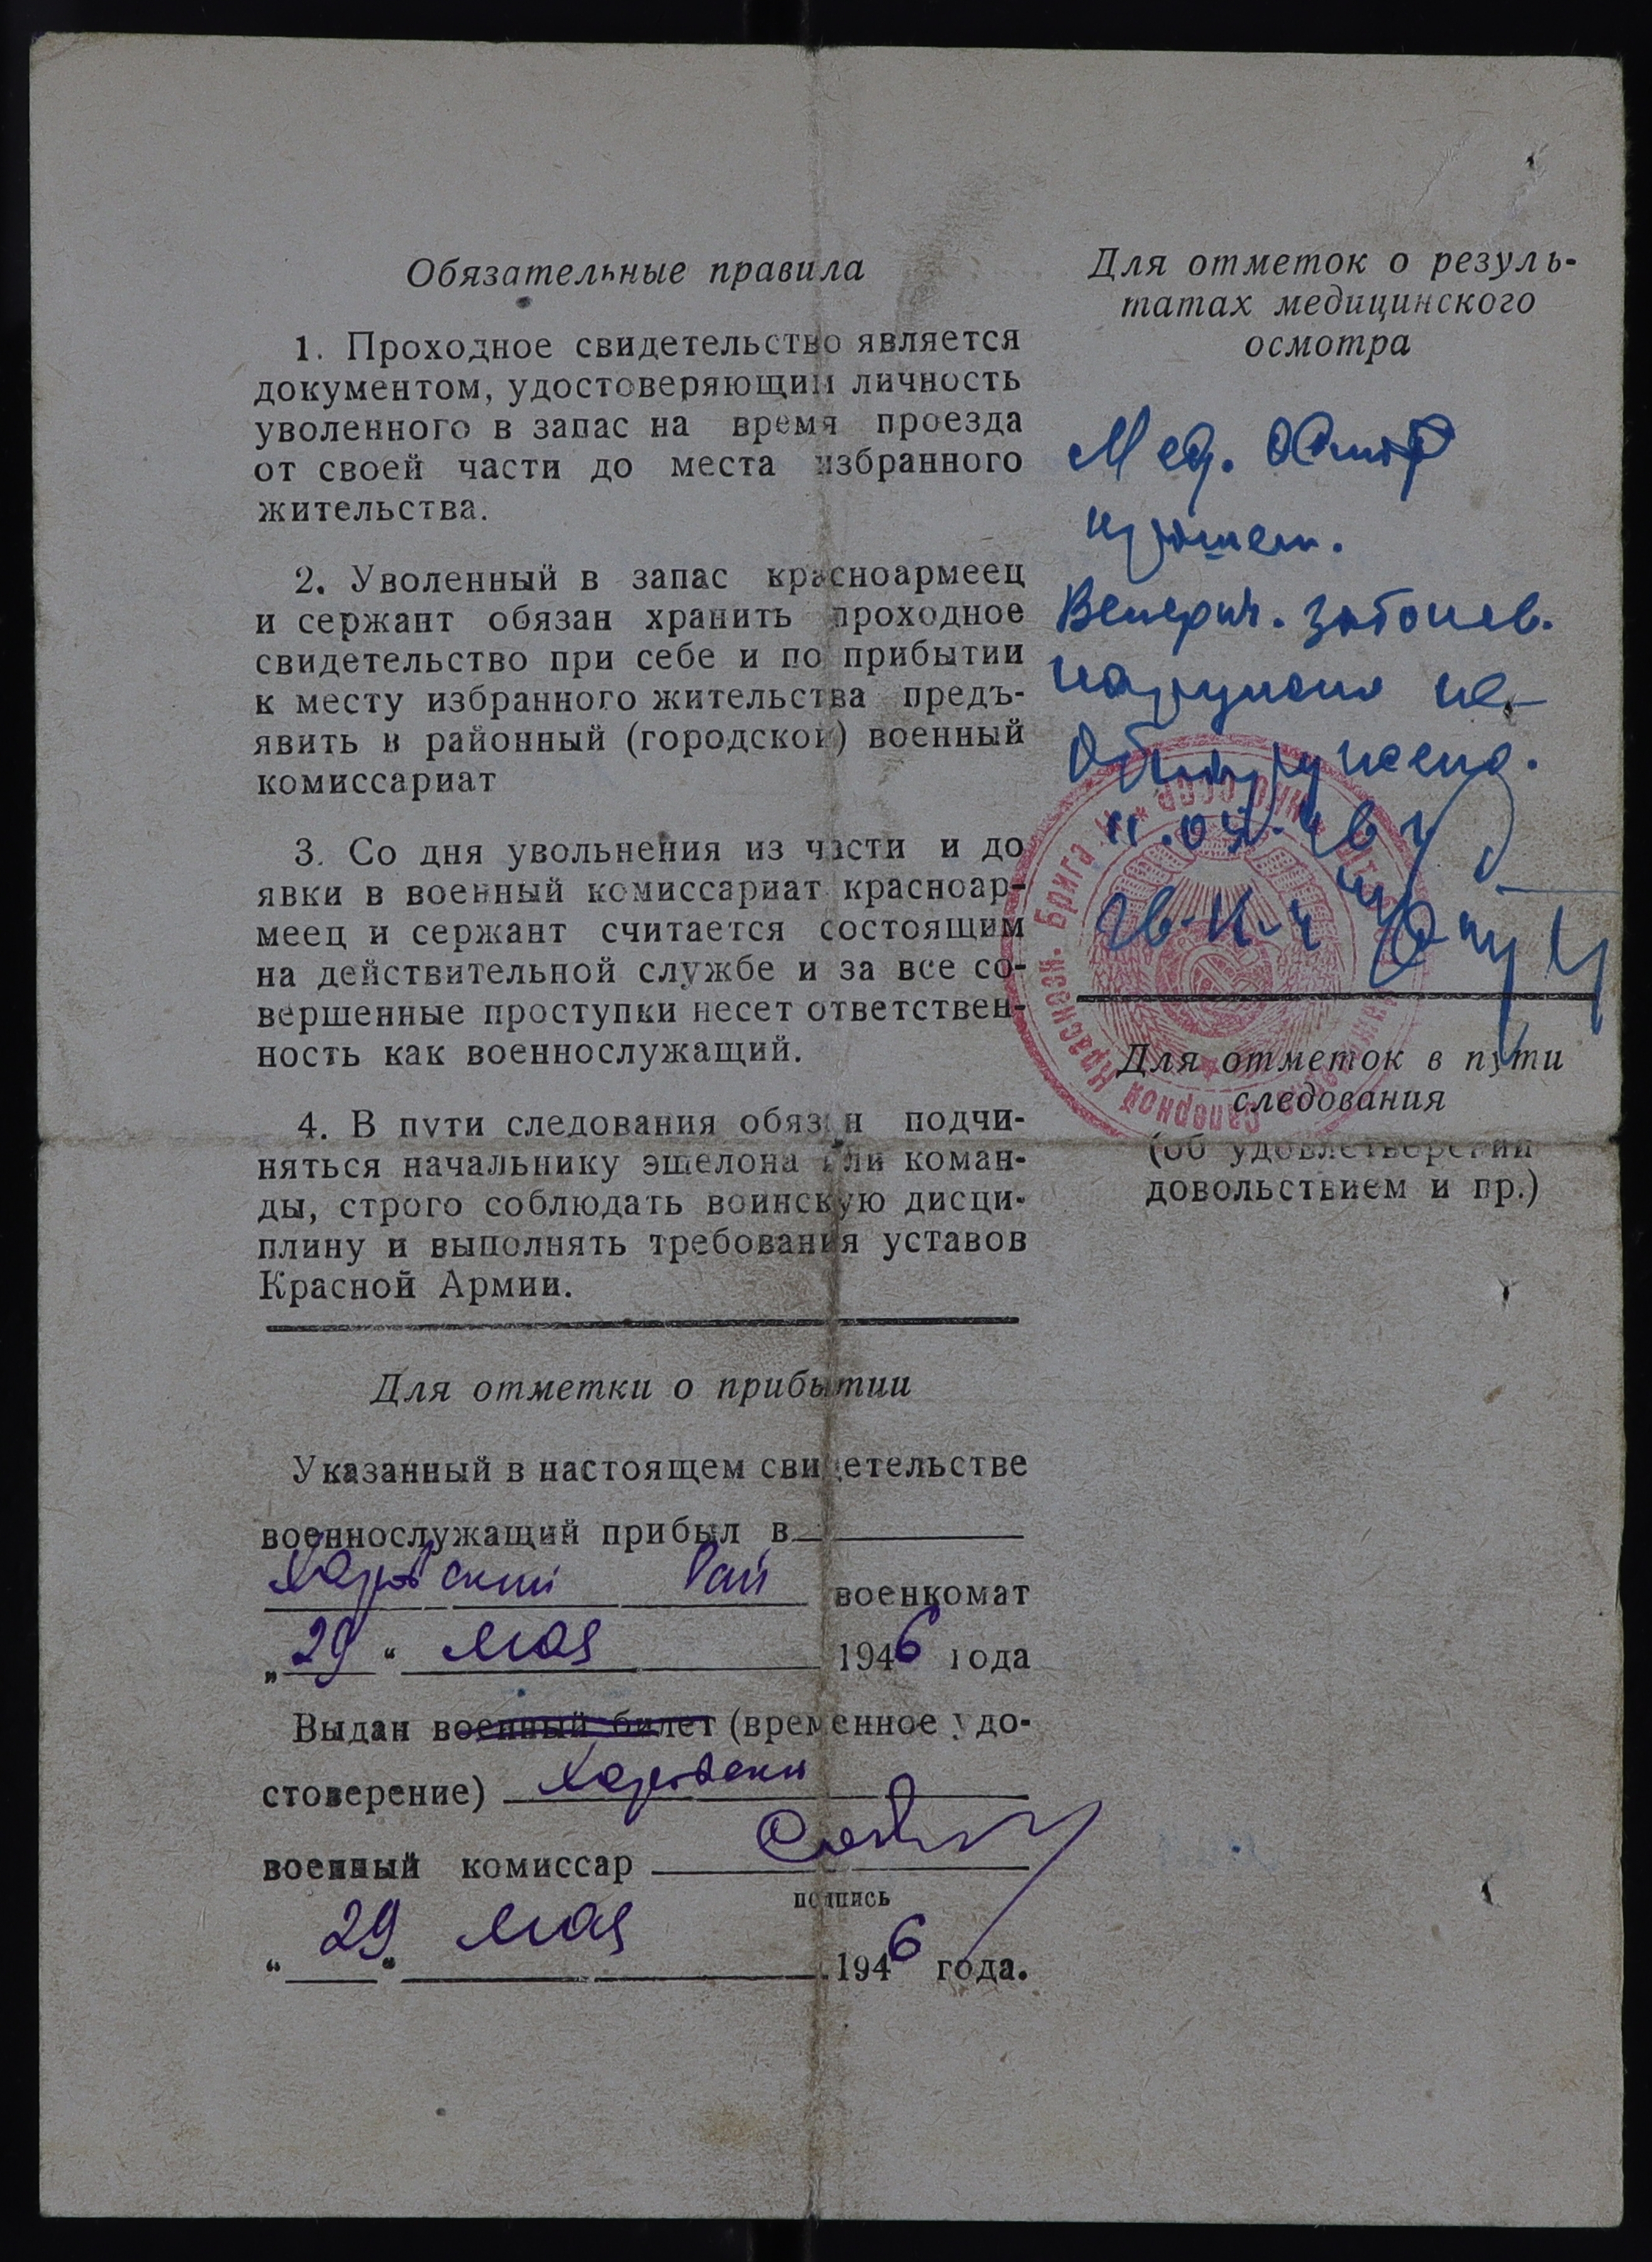 Обязательные правила
1. Проходное свидетельство является
документом, удостоверяющим личность
уволенного в запас на время проезда
от своей части до места избранного
жительства.
2. Уволенный в запас красноармеец
и сержант обязан хранить проходное
свидетельство при себе и по прибытии
к месту избранного жительства предъ-
явить в районный (городской) военный
комиссариат
3. Со дня увольнения из части и до
явки в военный комиссариат красноар-
меец и сержант считается состоящим
на действительной службе и за все со-
вершенные проступки несет ответствен-
ность как военнослужащий.
4. В пути следования обязан подчи-
няться начальнику эшелона или коман-
ды, строго соблюдать воинскую дисци-
плину и выполнять требования уставов
Красной Армии.
Для отметки о прибытии
Указанный в настоящем свидетельстве
военнослужащий прибыл в
Харовский Рай военкомат
„29“ мая 1946 года
Выдан военный билет (временное удо-
стоверение) Харовски
военный комиссар
подпись
“29“ мая 1946 года.
Для отметок о резуль-
татах медицинского
осмотра
Мед. осмотр
прошел.
Венерич. заболев.
наружных не
обнаружено.
Для отметок в пути
следования
(об удовлетворении
довольствием и пр.)